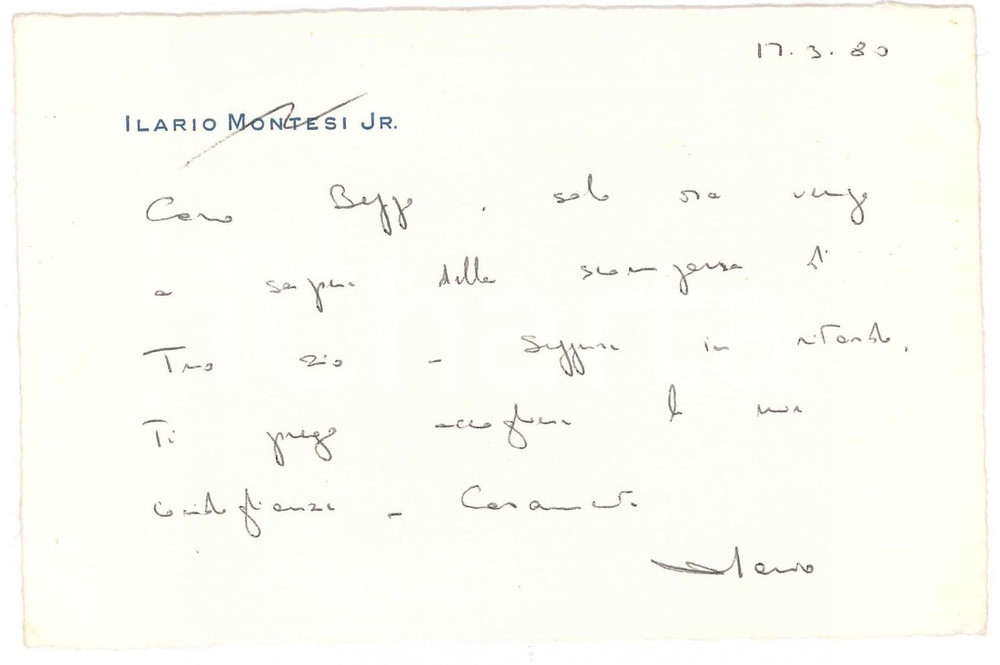 17.3.80
ILARIO MONTESI JR.
Caro Beppe, solo ora vengo
a sapere della scomparsa di
Tuo zio - Seppure in ritardo,
Ti prego accogliere le mie
condoglianze - Caramente
Ilario